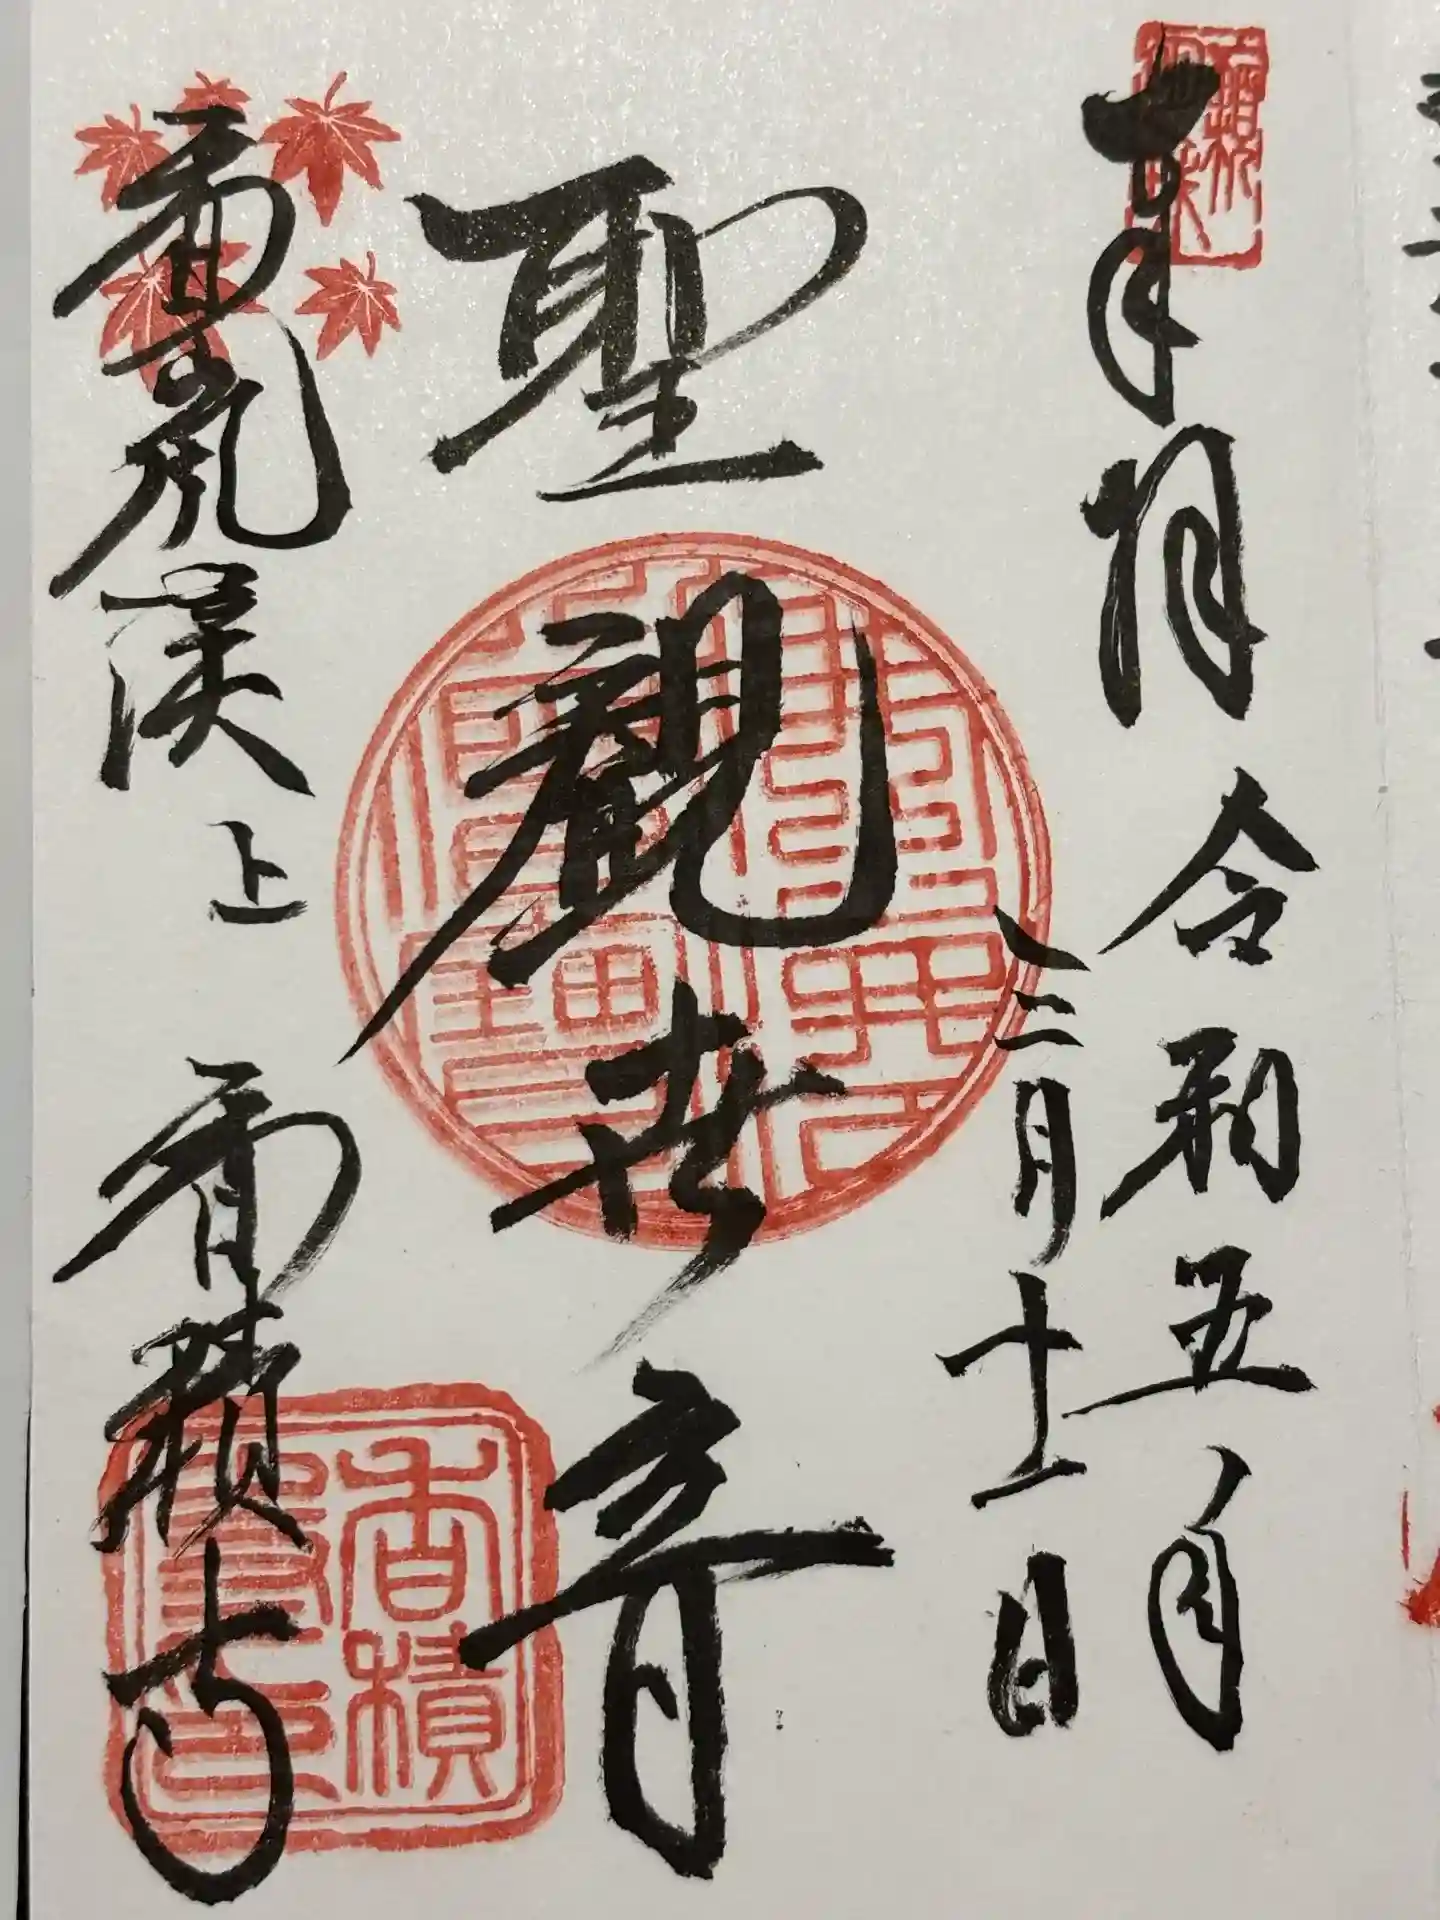 奉拝
令和五年
三月十一日
聖
観世音
香嵐渓上 香積寺
香積